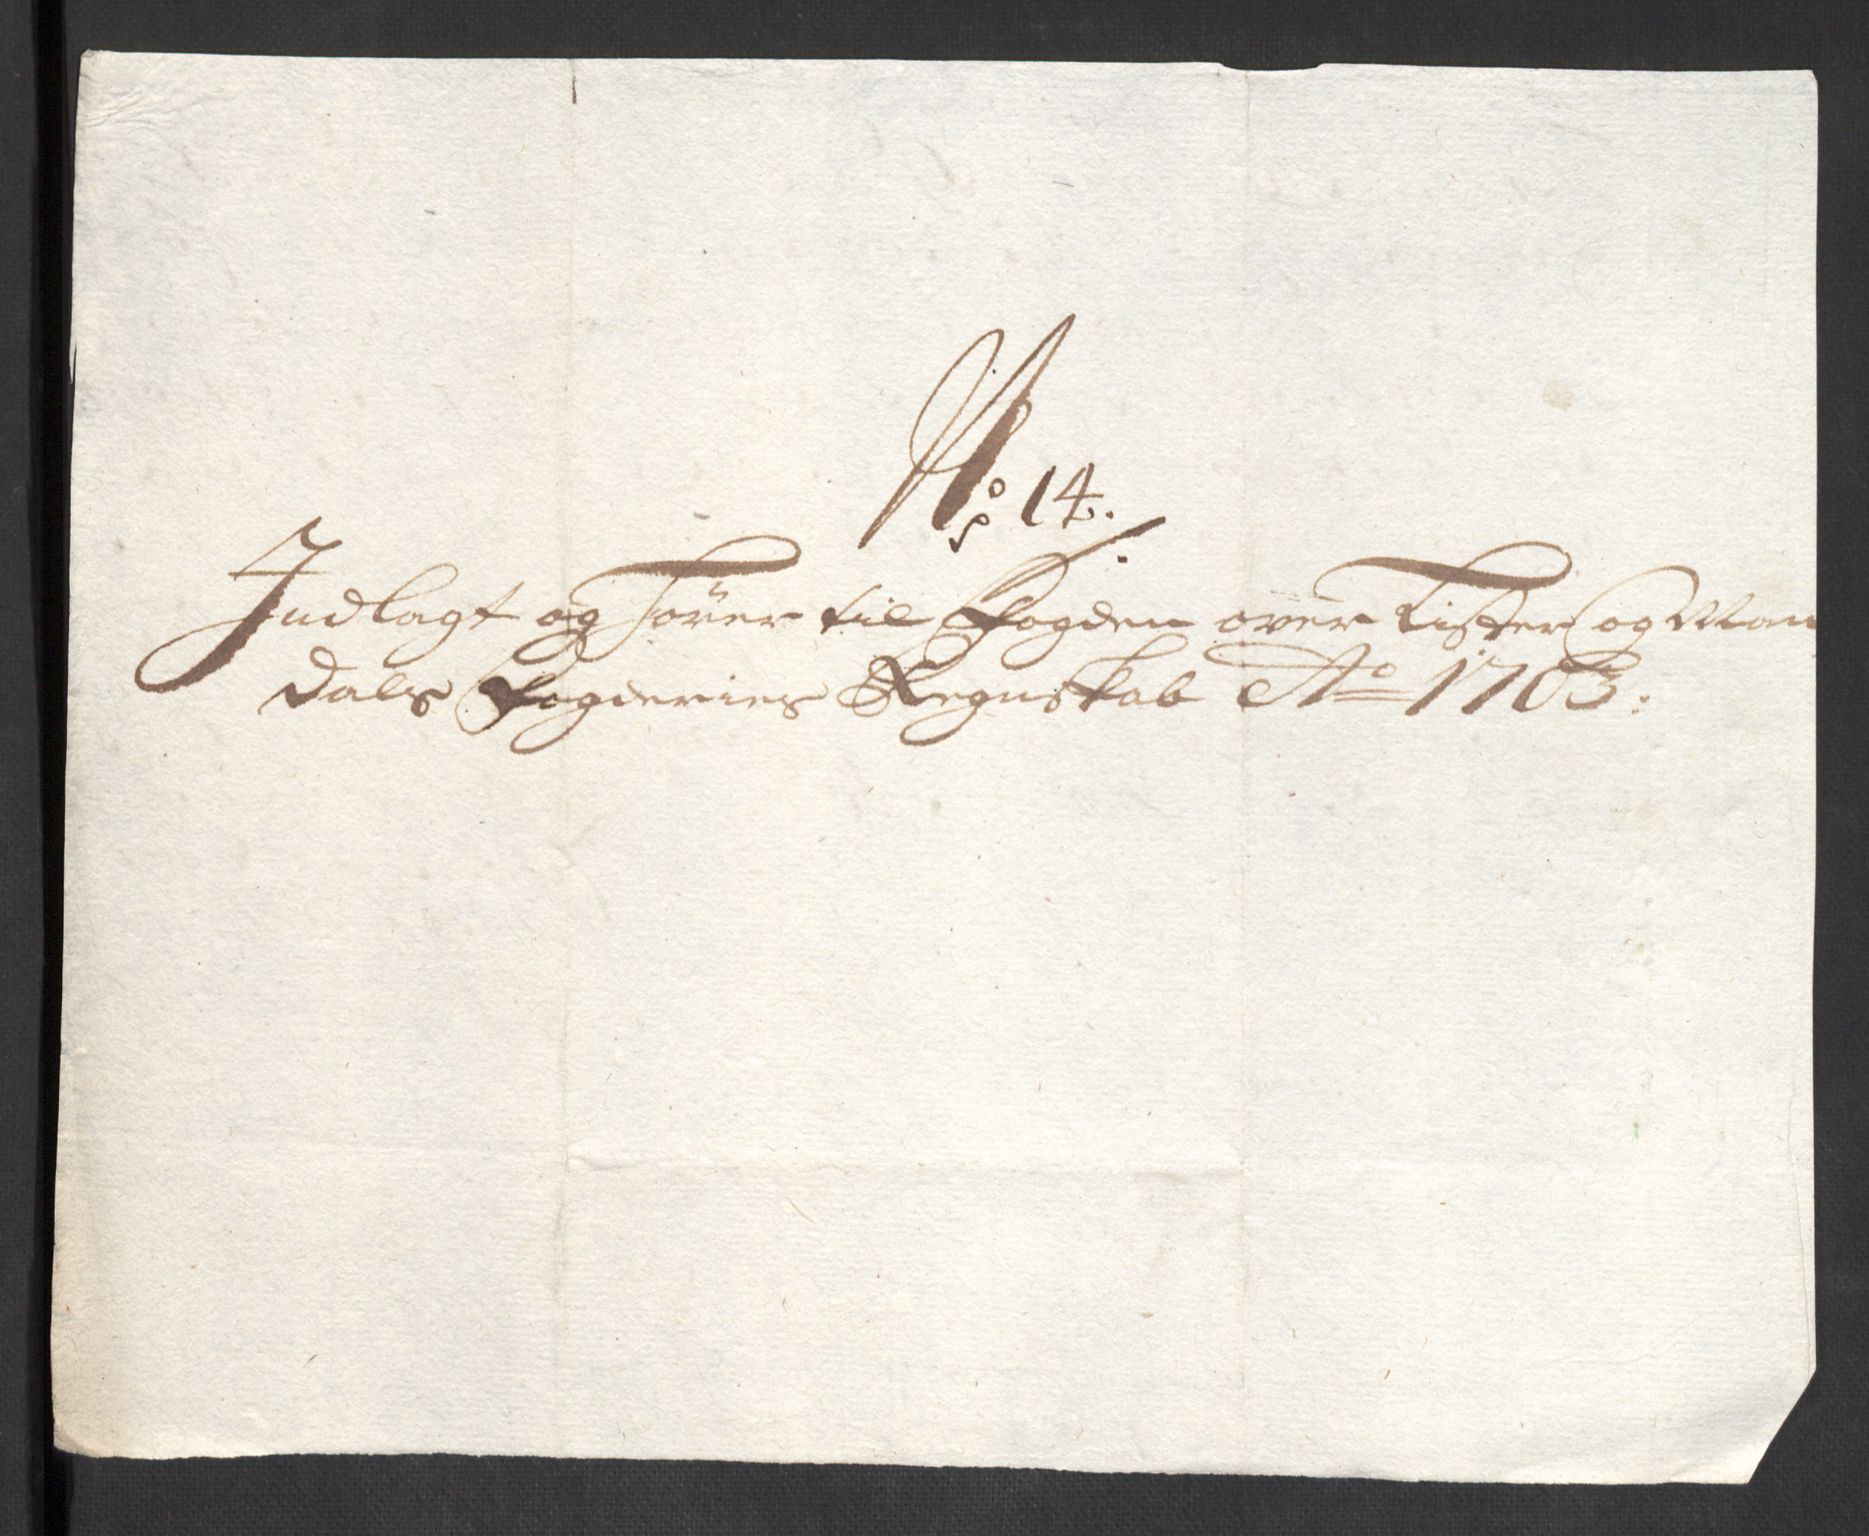 No: 14.
Indlagt og Hører til Fogden over Lister og Man
dals Fogderies Regnskab Ao 1703: